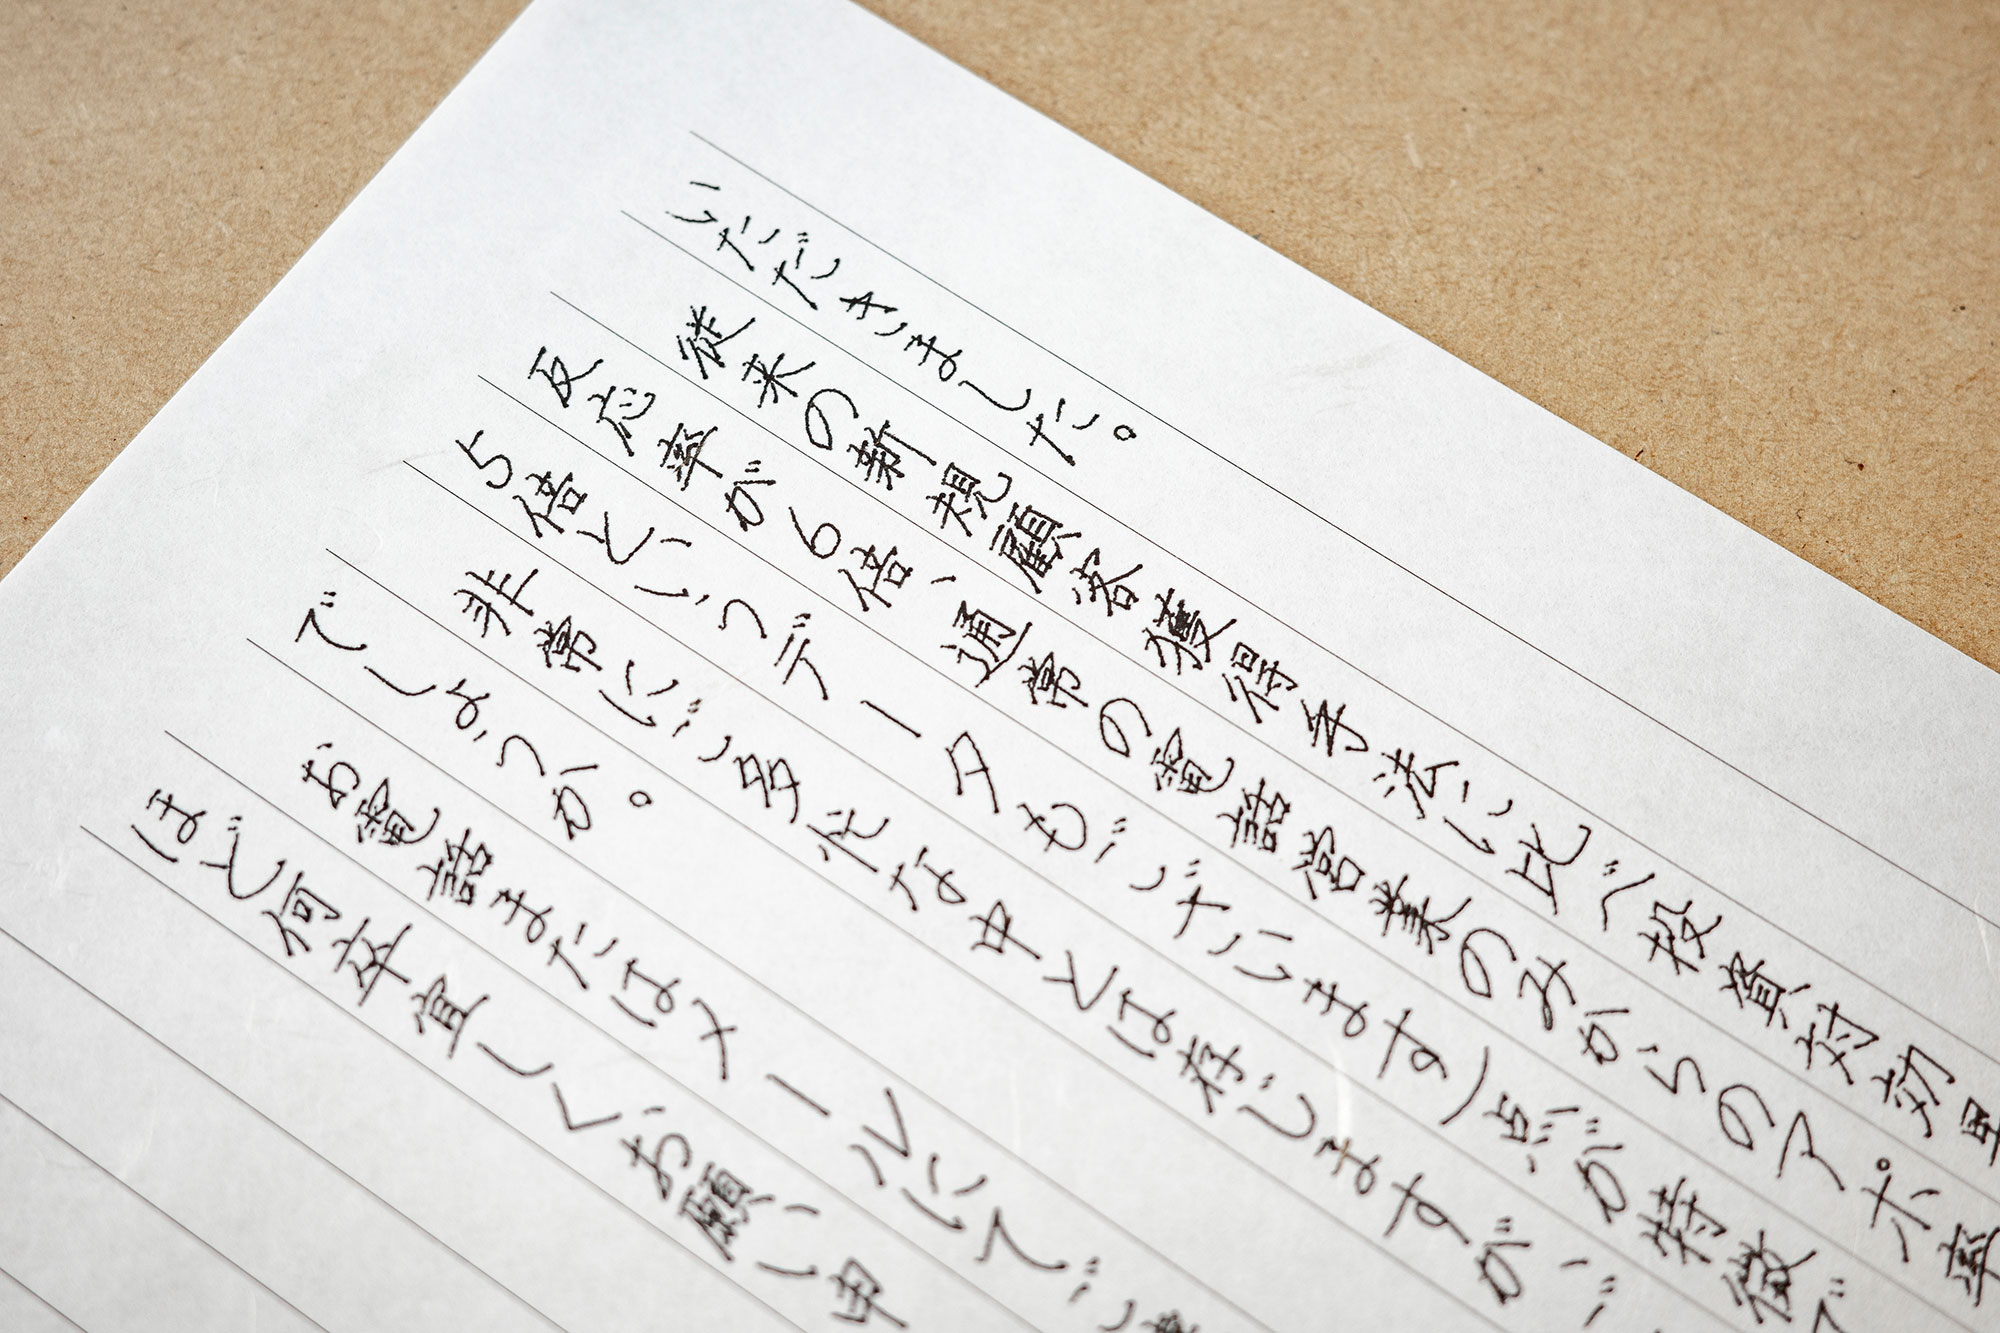 いただきました。
従来の新規顧客獲得手法に比べ投資対効果
反応率が6倍、通常の電話営業のみからのアポ率
5倍というデータもございます）点が特徴で
非常にご多忙な中とは存じますが、ご
でしょうか。
お電話またはメールにてご連
ほど何卒宜しくお願い申